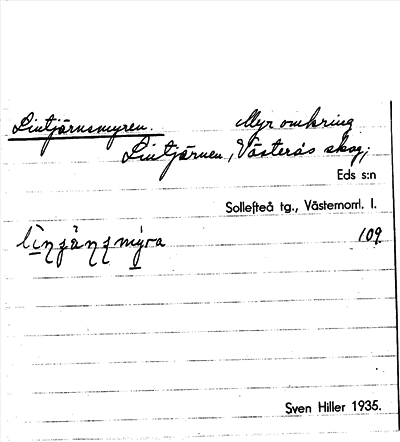 Lintjärnsmyren. Myr omkring
Lintjärnen, Västerås skog;
Eds s:n
Sollefteå tg., Västernorrl. l.
109
Sven Hiller 1935.